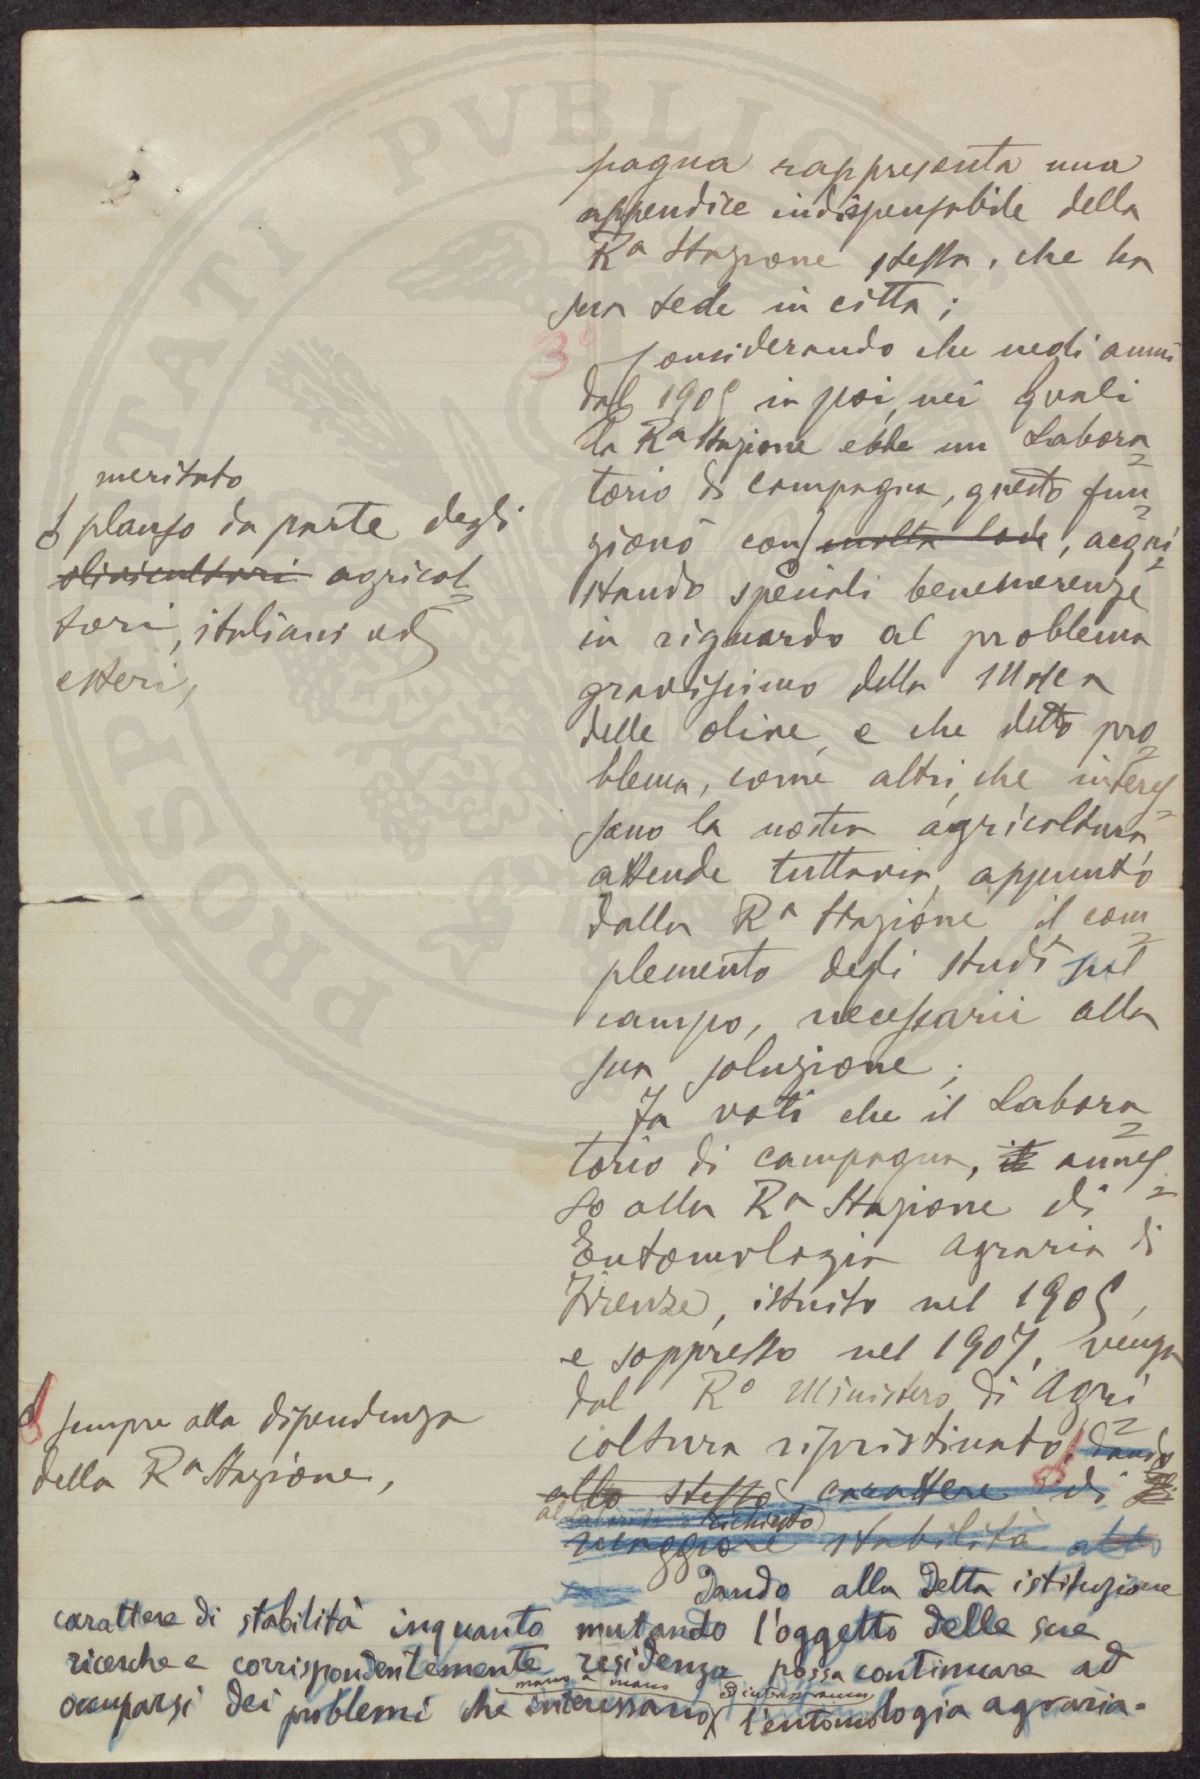 pagna rappresenta una
appendice indispensabile della
Rª Stazione stessa, che ha
sua sede in città;
3º
Considerando che negli anni
dal 1905 in poi, nei quali
la Rª Stazione ebbe un Labora=
torio di campagna, questo fun=
zionò con molta lode, acqui=
stando speciali benemerenze
in riguardo al problema
gravissimo della Mosca
delle olive, e che detto pro=
blema, come altri, che interes=
sano la nostra agricoltura,
attende tuttavia, appunto
dalla Rª Stazione il com=
plemento degli studi sul
campo, necessarii alla
sua soluzione;
Fa voti che il Labora=
torio di campagna, il annes=
so alla Rª Stazione di
Entomologia agraria di
Firenze, istituito nel 1905,
e soppresso nel 1907, venga
dal Rº Ministero di Agri=
coltura ripristinato, dando
allo stesso carattere di
al richiesto
maggiore stabilità
dando alla detta istituzione
carattere di stabilità inquanto mutando l'oggetto delle sue
ricerche e corrispondentemente residenza possa continuare ad
mano a mano
occuparsi dei problemi che interessano l'entomologia agraria.
meritato
plauso da parte degli
olivicultori agricol=
tori, italiani ed
esteri,
sempre alla dipendenza
della Rª Stazione,
PROSPERITATI PVBLICAE